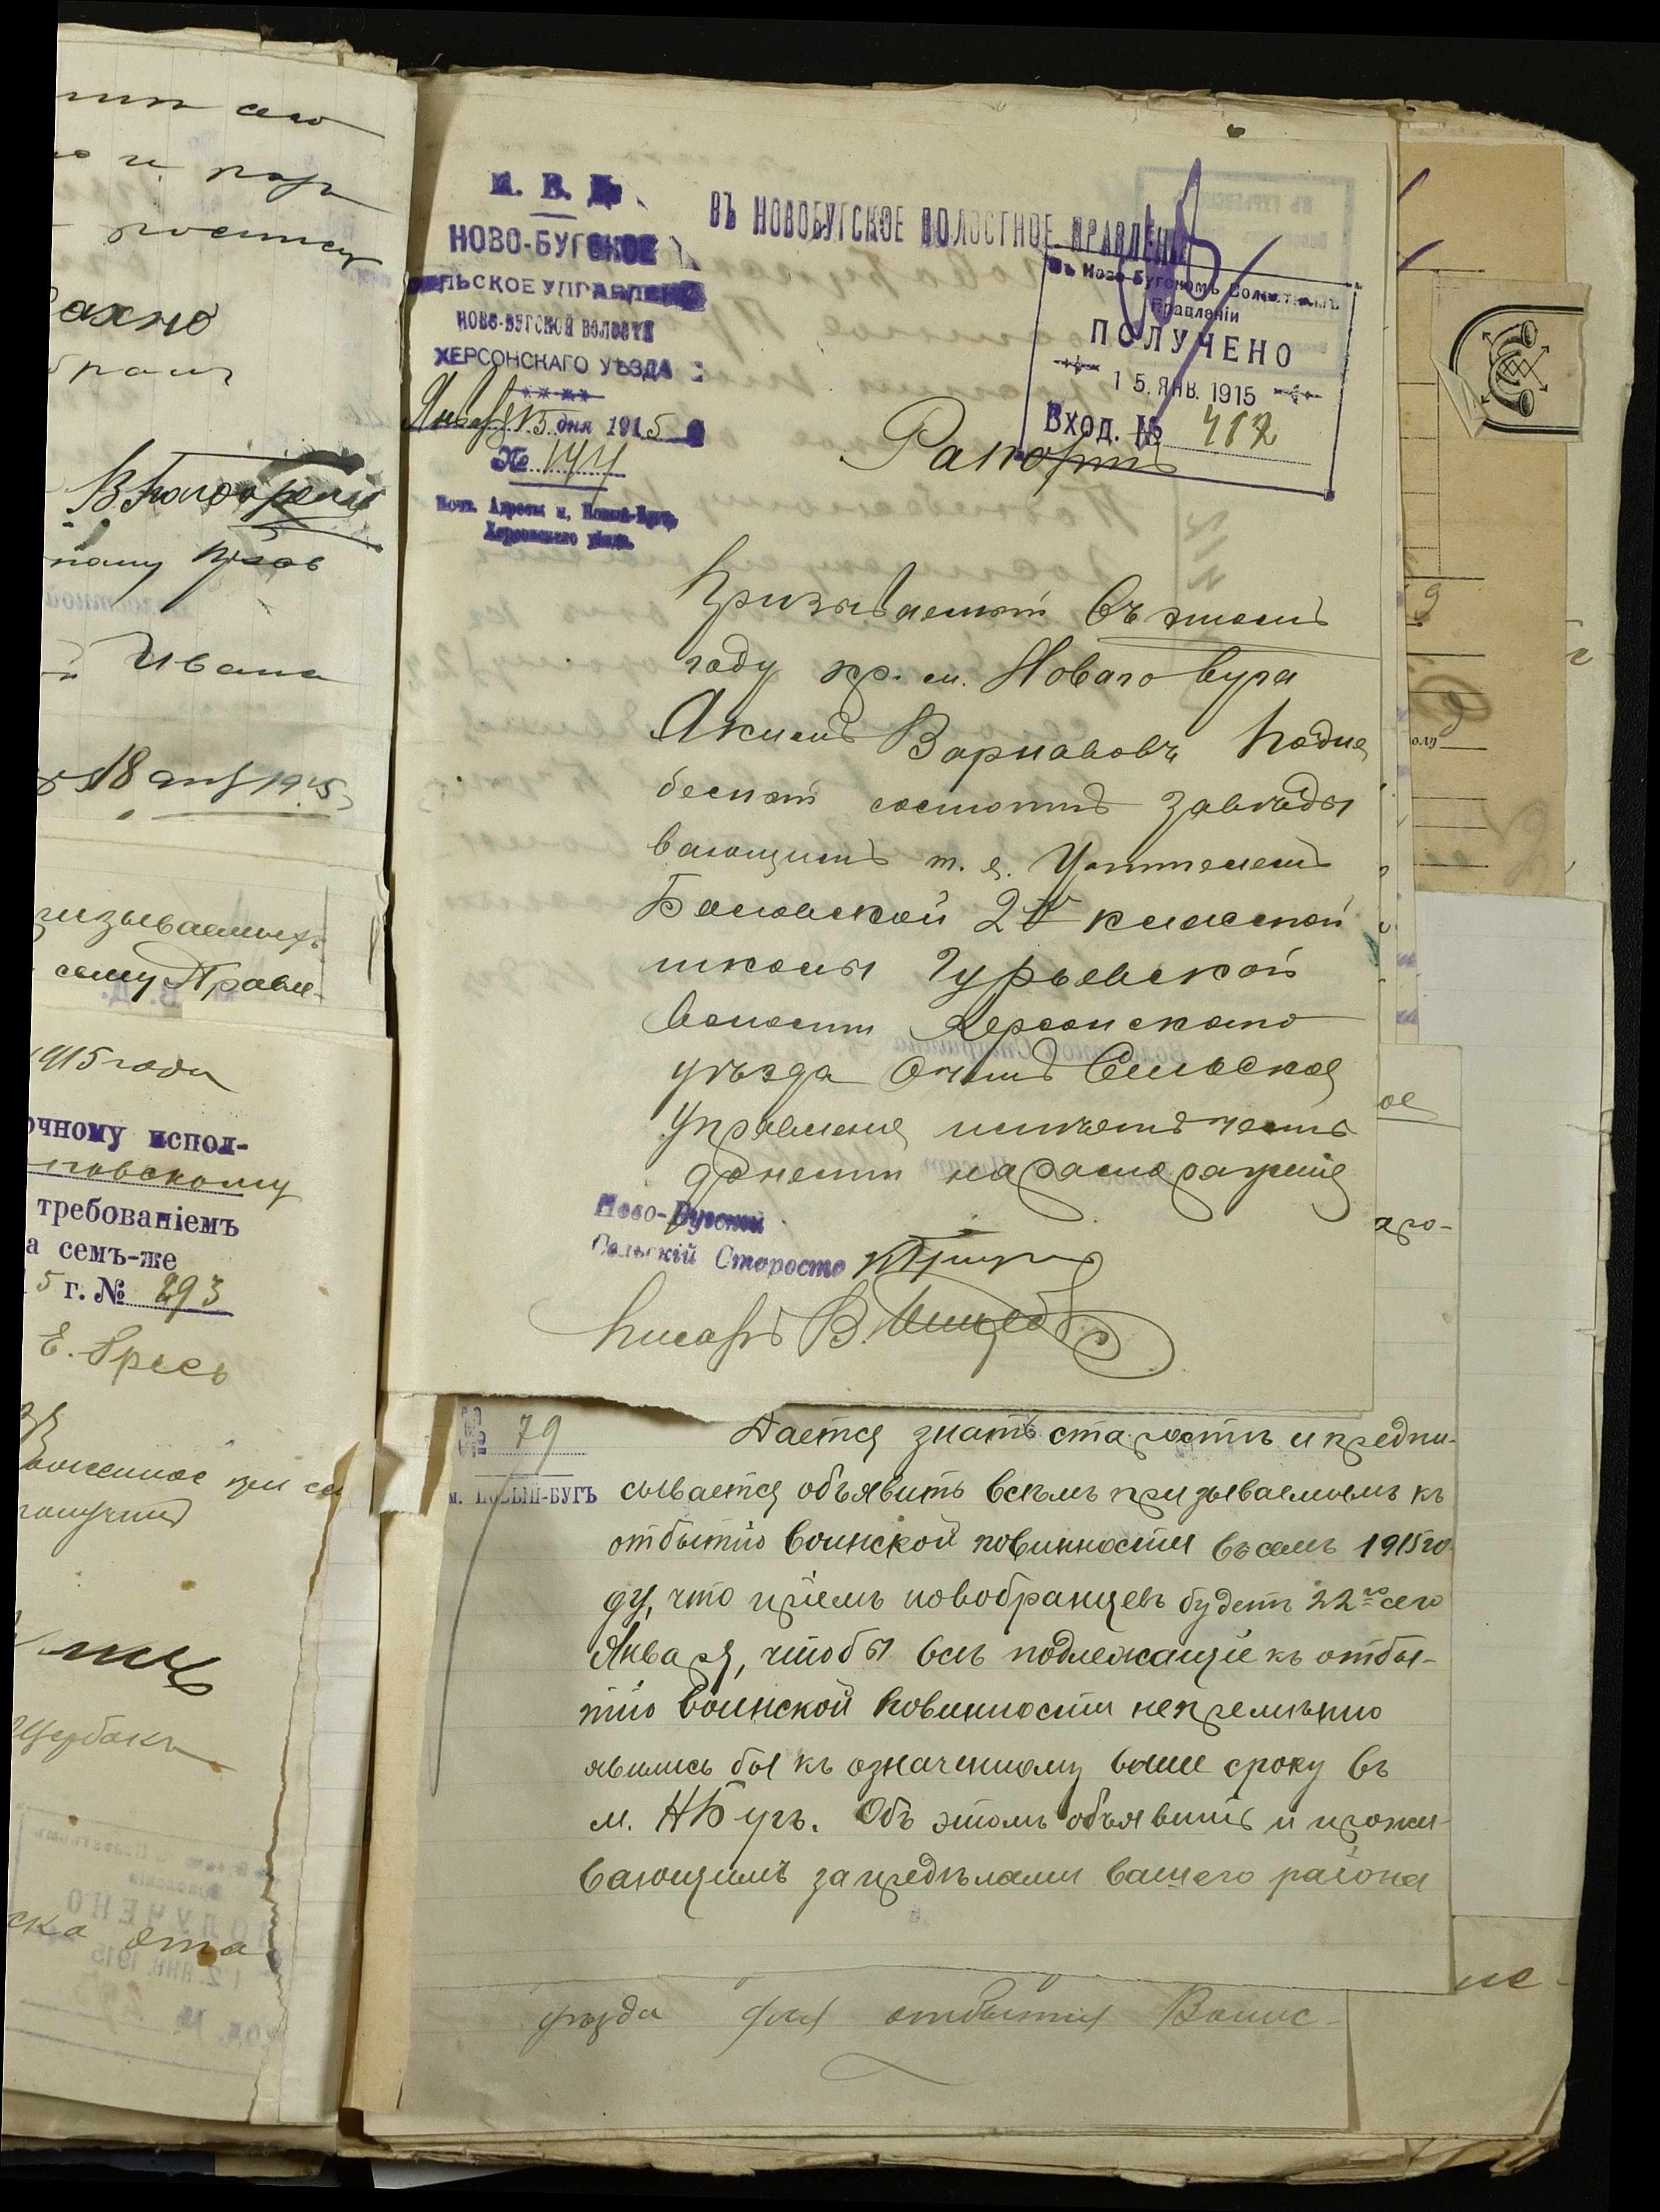 нія его
росписку
Вахно
В. Благодареніе
ному
Ивана
18 янв 1915
ризываемыхъ
сему Правле-
1915 года
очному испол-
повскому
требованіемъ
а семъ-же
5 г. № 293
Е. Бресь
получилъ
Щербакъ
ска
ПОЛУЧЕНО
12. ЯНВ. 1915
М. В. Д.
НОВО-БУГСКОЕ
СЕЛЬСКОЕ УПРАВЛЕНІЕ
НОВО-БУГСКОЙ ВОЛОСТИ
ХЕРСОНСКАГО УѢЗДА
Января 15 дня 1915 г.
№ 144
Почт. Адресъ м. Новый-Бугъ,
Херсонскаго уѣзда.
ВЪ НОВОБУГСКОЕ ВОЛОСТНОЕ ПРАВЛЕНІЕ
Въ Ново-Бугскомъ Волостномъ
Правленіи
ПОЛУЧЕНО
15. ЯНВ. 1915
Вход. № 412
Рапортъ
Призываемый въ этомъ
году кр. м. Новаго Буга
Акимъ Варнавовъ Подне
бесный состоитъ Завѣды
вающимъ т. е. Учителемъ
2й класной
школы Гурьевской
Волости Херсонскаго
уѣзда О чемъ Сельское
Управленіе имѣетъ честь
донести на распоряженіе
Ново-Бугскій
Сельскій Староста
Писарь В.
№ 79
м. НОВЫЙ-БУГЪ
Дается знать старостѣ и предпи-
сывается объявить всѣмъ призываемымъ къ
отбытію воинской повинности въ семъ 1915 го
ду, что пріемъ новобранцевъ будетъ 22го сего
Января, чтобы всѣ подлежащіе къ отбы-
тію воинской повинности непремѣнно
явились бы къ означенному выше сроку въ
м. Н Бугъ. Объ этомъ объявить и прожи-
вающимъ за предѣлами вашего района
уѣзда для отбытія Воинс-
ое
аго-
не-